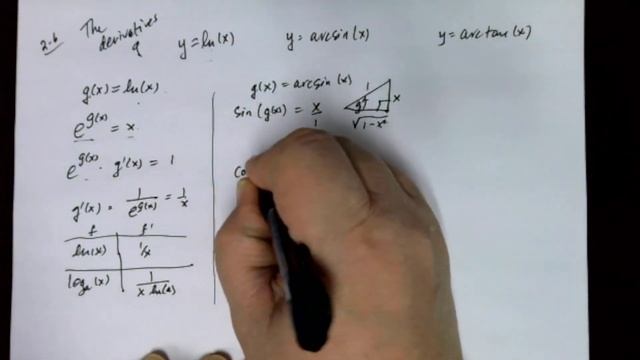 2.6 The derivatives of y = ln(x) y = arcsin(x) y = arctan(x)
g(x) = ln(x)
e^g(x) = x
e^g(x) · g'(x) = 1
g'(x) = 1/e^g(x) = 1/x
f f'
ln(x) 1/x
log_a(x) 1/(x ln(a))
g(x) = arcsin(x)
sin(g(x)) = x/1
1
g
x
√(1-x²)
Co